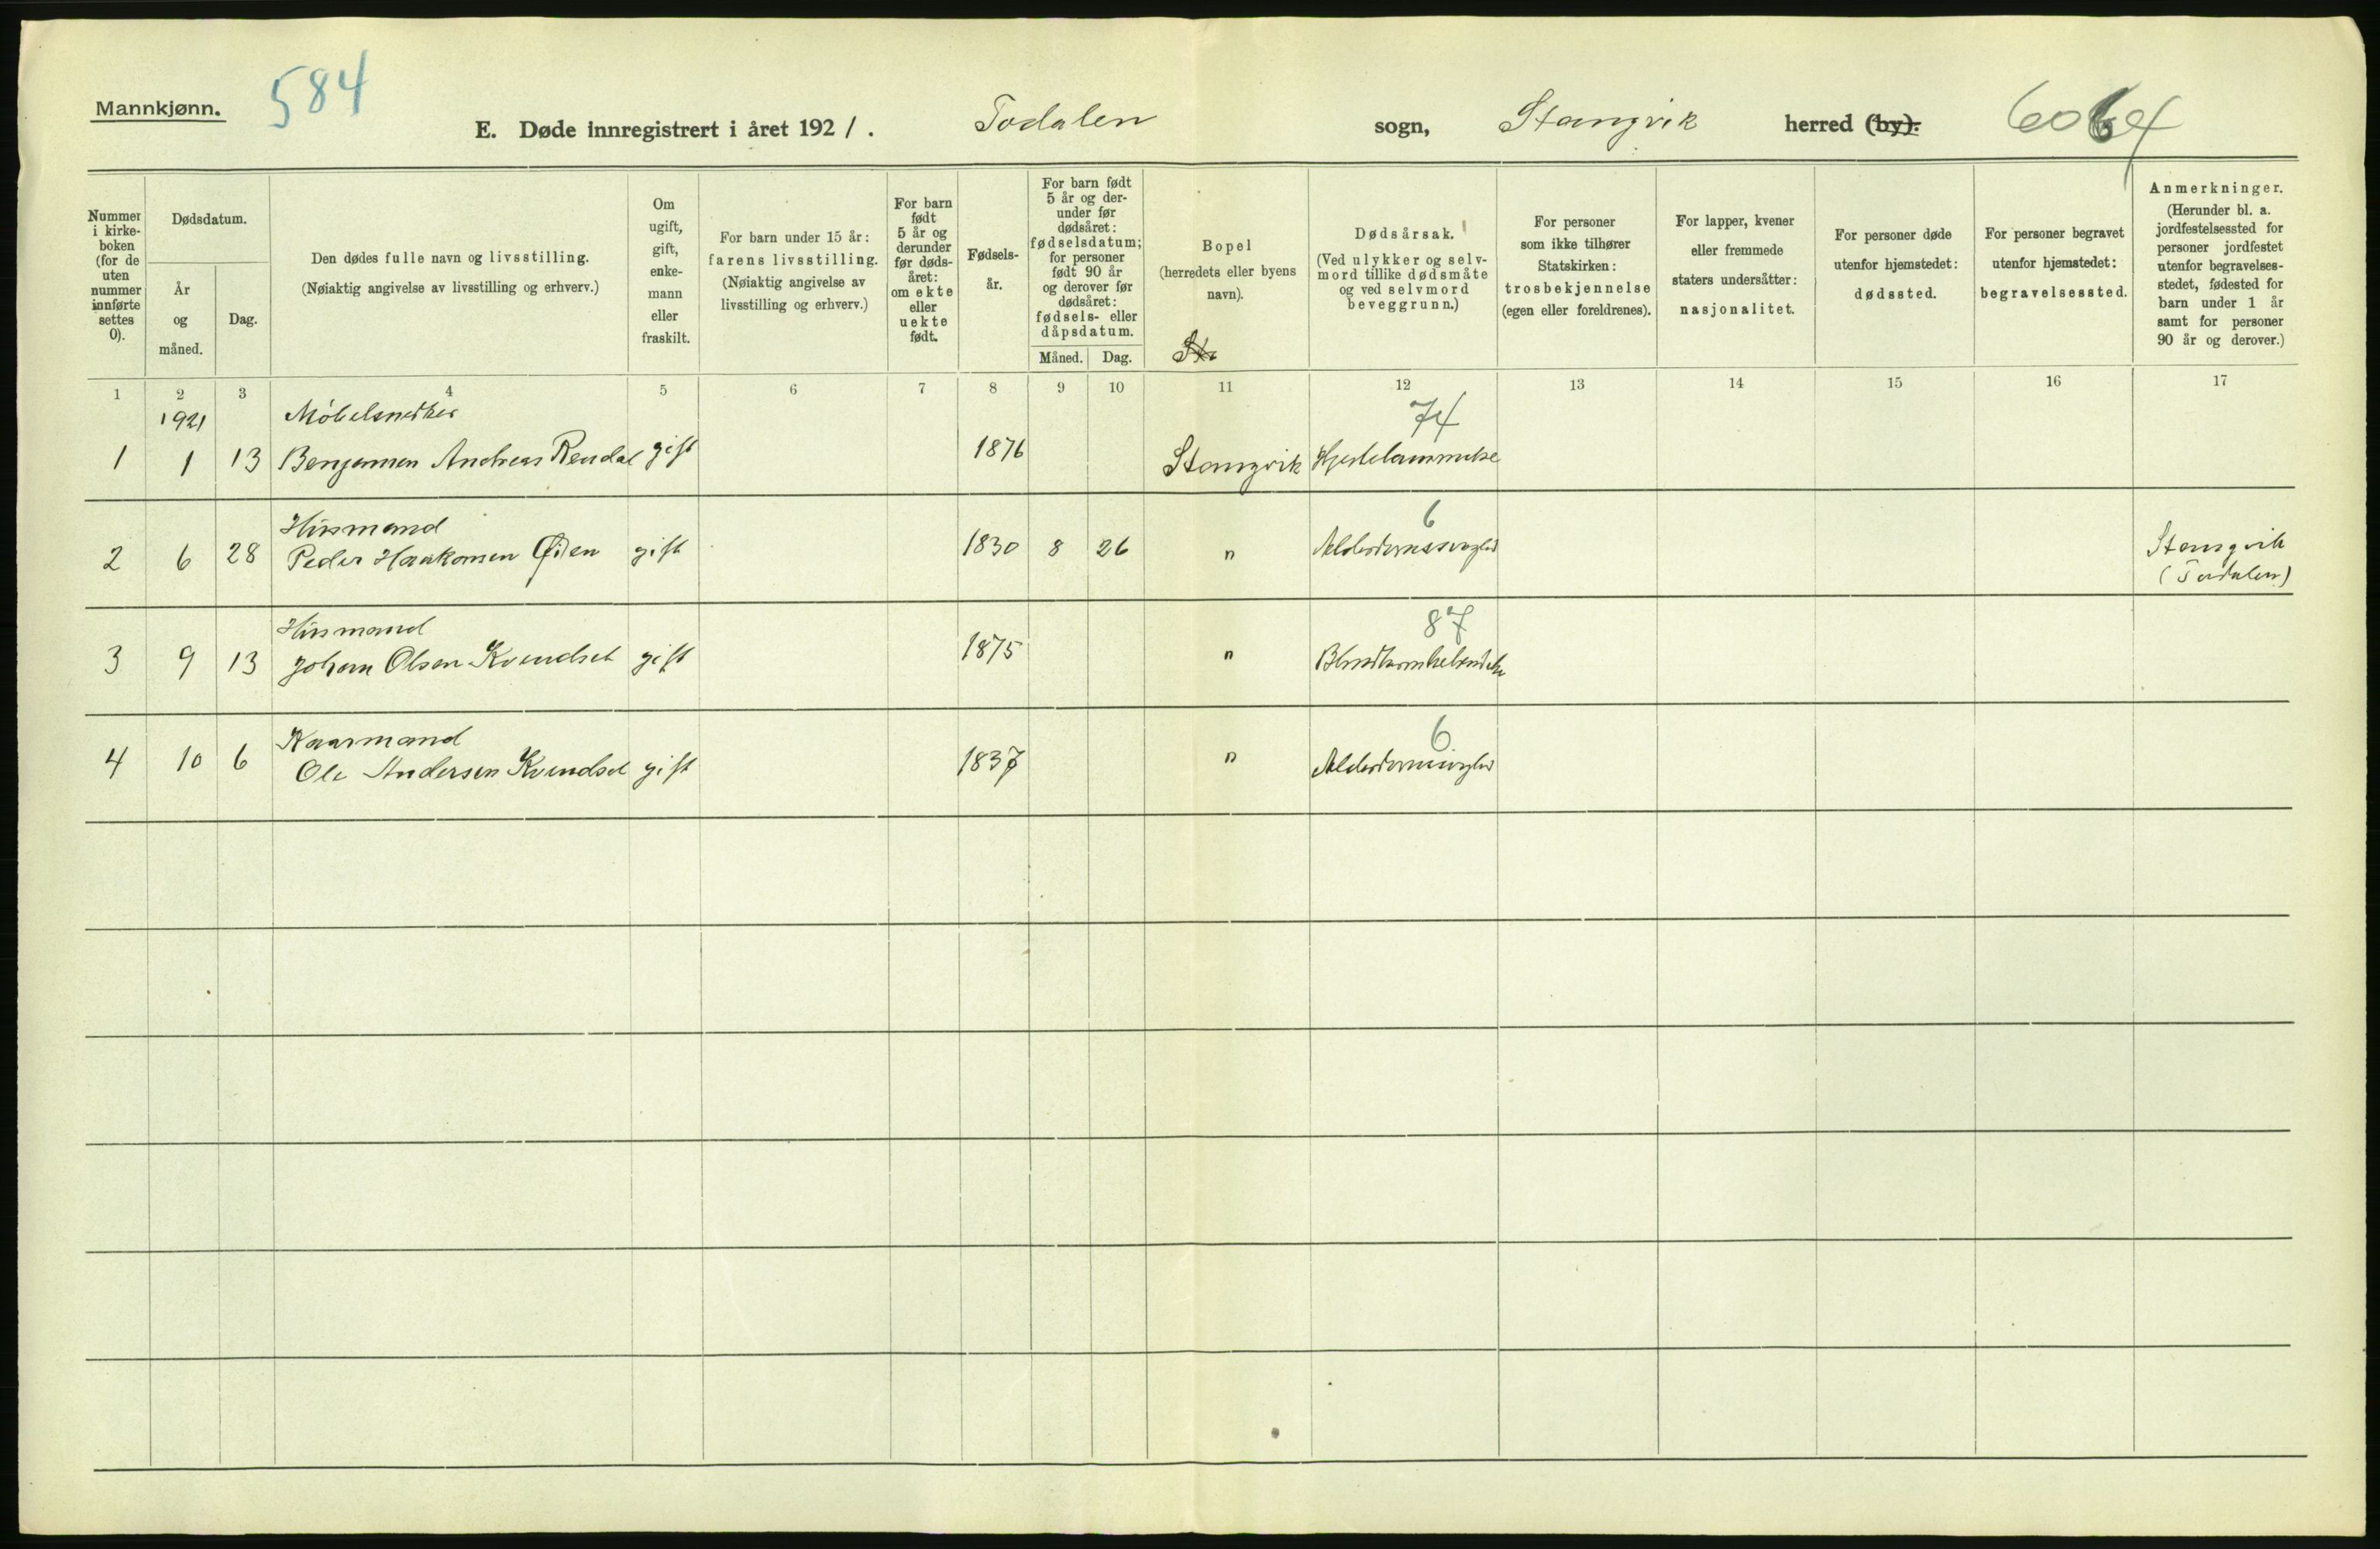 Mannkjønn.
584
E. Døde innregistrert i året 1921.
Todalen
sogn,
Stangvik
herred (by).
Nummer i kirkeboken (for de uten nummer innførte settes 0).
Dødsdatum.
År og måned.
Dag.
Den dødes fulle navn og livsstilling.
(Nøiaktig angivelse av livsstilling og erhverv.)
Om ugift, gift, enkemann eller fraskilt.
For barn under 15 år: farens livsstilling.
(Nøiaktig angivelse av livsstilling og erhverv.)
For barn født 5 år og derunder før dødsåret: om ekte eller uekte født.
Fødselsår.
For barn født 5 år og derunder før dødsåret: fødselsdatum; for personer født 90 år og derover før dødsåret: fødsels- eller dåpsdatum.
Måned.
Dag.
Bopel
(herredets eller byens navn).
Dødsårsak.
(Ved ulykker og selvmord tillike dødsmåte og ved selvmord beveggrunn.)
For personer som ikke tilhører Statskirken: trosbekjennelse (egen eller foreldrenes).
For lapper, kvener eller fremmede staters undersåtter: nasjonalitet.
For personer døde utenfor hjemstedet: dødssted.
For personer begravet utenfor hjemstedet: begravelsessted.
Anmerkninger.
(Herunder bl. a. jordfestelsessted for personer jordfestet utenfor begravelsesstedet, fødested for barn under 1 år samt for personer 90 år og derover.)
1 2 3 4 5 6 7 8 9 10 11 12 13 14 15 16 17
1921 Møbelsnedker 74
1 1 13 Benjamen Andreas Rendal gift 1876 Stangvik Hjertelammelse
Husmand 6
2 6 28 Peder Haakonsen Øien gift 1830 8 26 " Alderdomssvaghed Stangvik
(Todalen)
Husmand 87
3 9 13 Johan Olsen Kvendset gift 1875 " Blindtarmbetendelse
Kaarmand 6
4 10 6 Ole Andersen Kvendset gift 1837 " Alderdomssvaghed